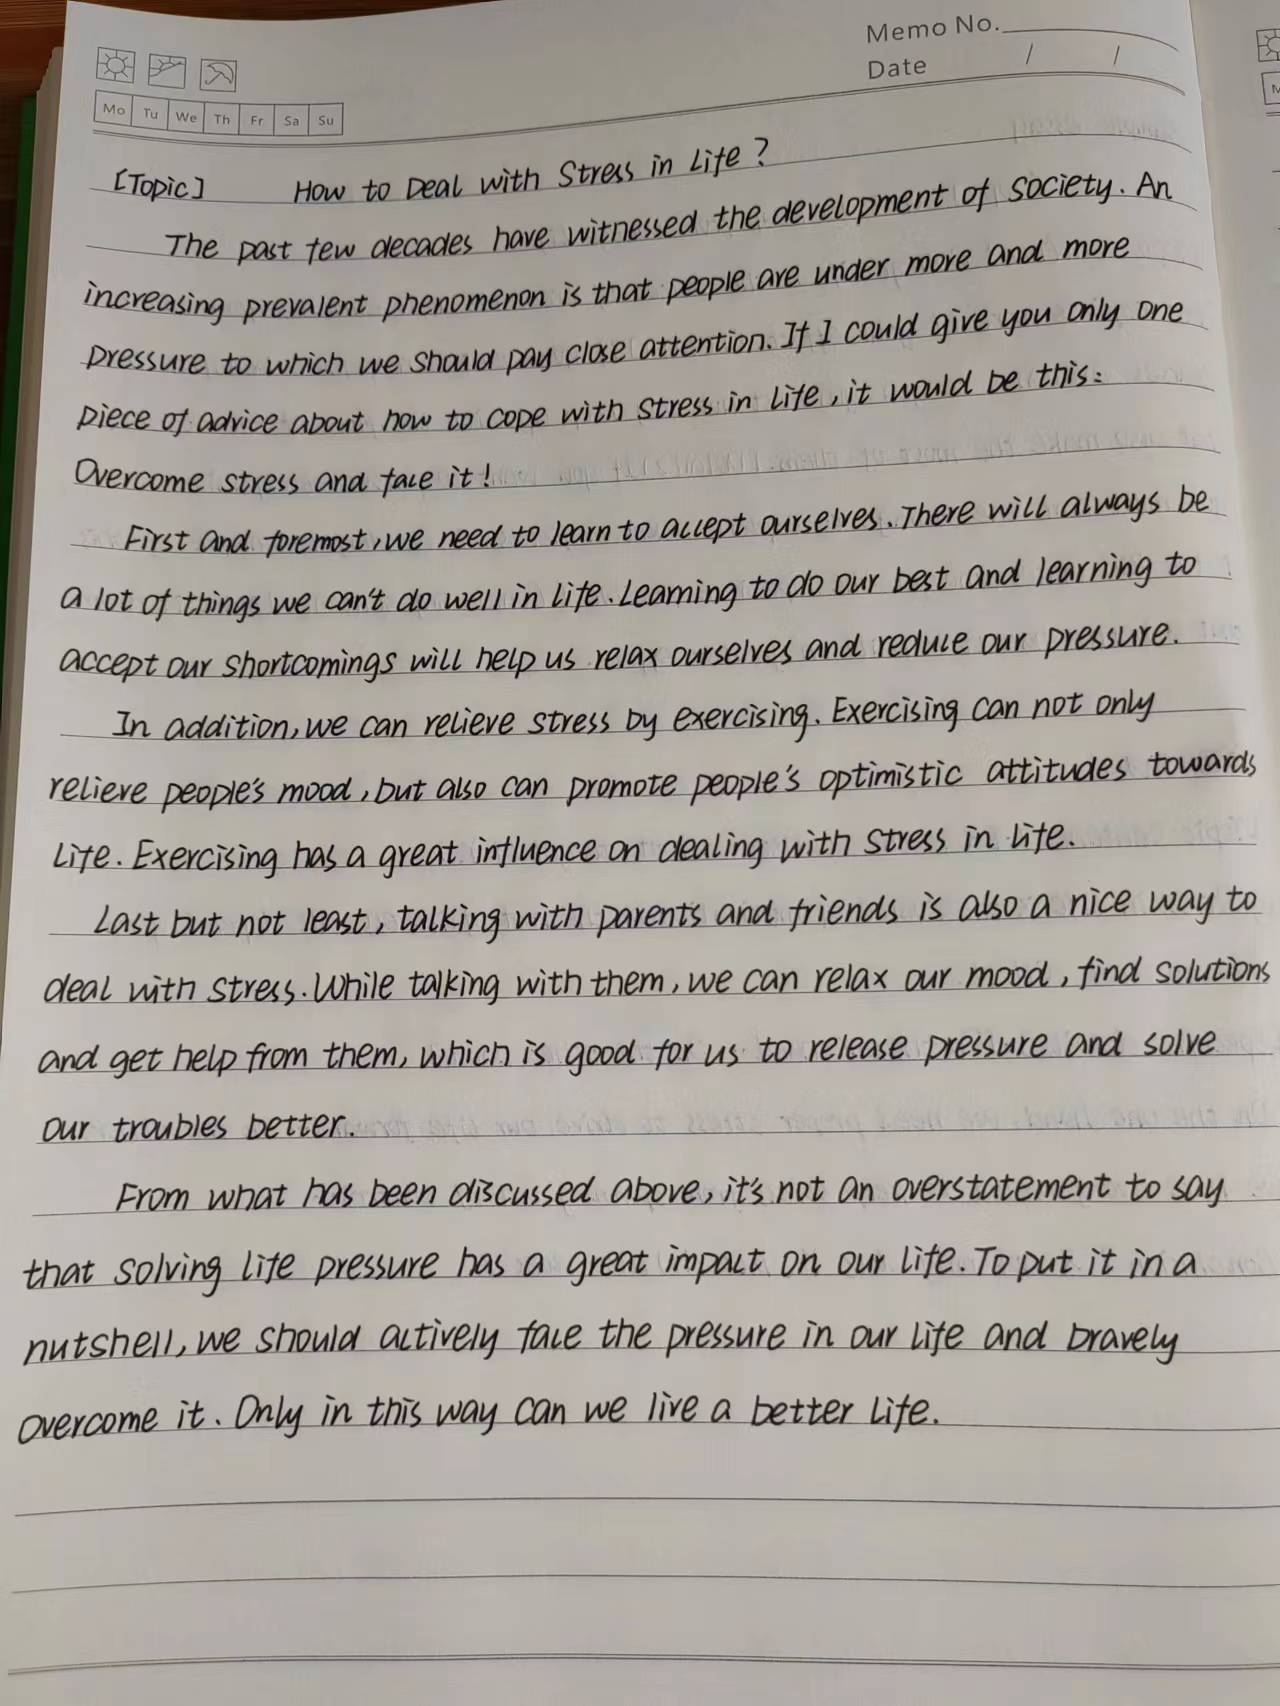 Memo No.
Date / /
Mo Tu We Th Fr Sa Su
[Topic] How to Deal with Stress in Life?
The past few decades have witnessed the development of society. An
increasing prevalent phenomenon is that people are under more and more
pressure to which we should pay close attention. If I could give you only one
piece of advice about how to cope with stress in life, it would be this:
Overcome stress and face it!
First and foremost, we need to learn to accept ourselves. There will always be
a lot of things we can't do well in life. Learning to do our best and learning to
accept our shortcomings will help us relax ourselves and reduce our pressure.
In addition, we can relieve stress by exercising. Exercising can not only
relieve people's mood, but also can promote people's optimistic attitudes towards
life. Exercising has a great influence on dealing with stress in life.
Last but not least, talking with parents and friends is also a nice way to
deal with stress. While talking with them, we can relax our mood, find solutions
and get help from them, which is good for us to release pressure and solve
our troubles better.
From what has been discussed above, it's not an overstatement to say
that solving life pressure has a great impact on our life. To put it in a
nutshell, we should actively face the pressure in our life and bravely
overcome it. Only in this way can we live a better life.